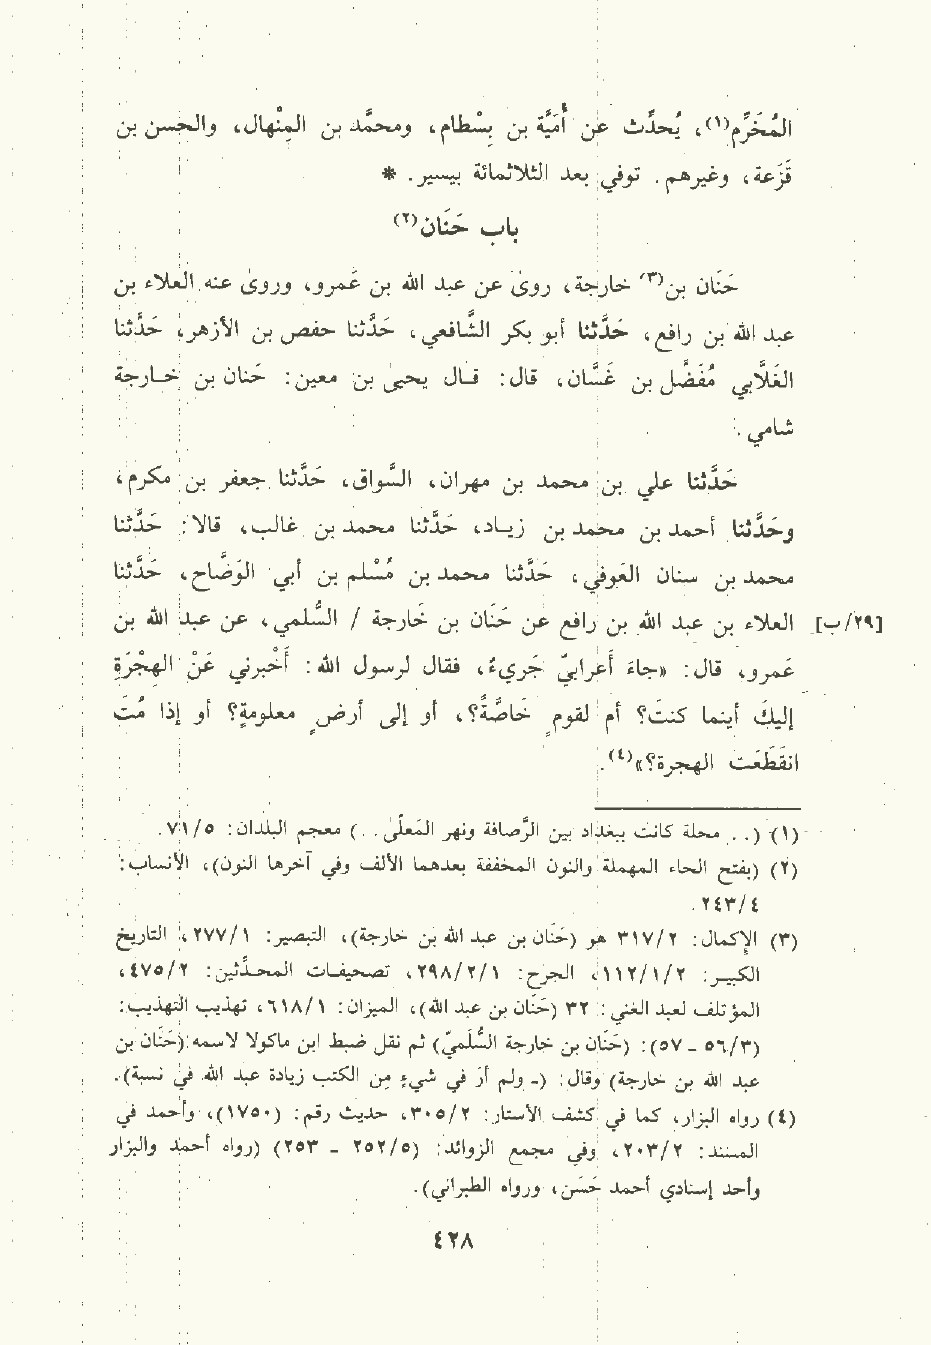 المُخَرِّم(١)، يُحدِّث عن أُمَيَّة بن بِسْطام، ومحمَّد بن المِنْهال، والحسن بن
قَزَعة، وغيرهم. توفي بعد الثلاثمائة بيسير. *
باب حَنَان(٢)
حَنَان بن(٣) خارجة، روىٰ عن عبد الله بن عَمرو، وروىٰ عنه العلاء بن
عبد الله بن رافع، حَدَّثنا أبو بكر الشَّافعي، حَدَّثنا حفص بن الأزهر، حَدَّثنا
الغَلَّابي مُفَضَّل بن غَسَّان، قال: قال يحيىٰ بن معين: حَنان بن خارجة
شامي.
حَدَّثنا علي بن محمد بن مهران، السَّواق، حَدَّثنا جعفر بن مكرم،
وحَدَّثنا أحمد بن محمد بن زياد، حَدَّثنا محمد بن غالب، قالا: حَدَّثنا
محمد بن سنان العَوفي، حَدَّثنا محمد بن مُسْلم بن أبي الوَضَّاح، حَدَّثنا
[٢٩/ب] العلاء بن عبد الله بن رافع عن حَنَان بن خَارجة / السُّلمي، عن عبد الله بن
عَمرو، قال: «جاءَ أَعرابيّ جَريءٌ، فقال لرسول الله: أَخْبرني عَنْ الهجْرَةِ
إليكَ أينما كنتَ؟ أم لقومٍ خَاصَّةً؟، أو إلى أرضٍ معلومةٍ؟ أو إذا مُتَ
انقَطَعَت الهجرة؟»(٤).
(١) (.. محلة كانت ببغداد بين الرَّصافة ونهر المَعلَّىٰ..) معجم البلدان: ٧١/٥.
(٢) (بفتح الحاء المهملة والنون المخففة بعدهما الألف وفي آخرها النون)، الأنساب:
٢٤٣/٤.
(٣) الإكمال: ٣١٧/٢ هو (حَنَان بن عبد الله بن خارجة)، التبصير: ٢٧٧/١، التاريخ
الكبير: ١١٢/١/٢، الجرح: ٢٩٨/٢/١، تصحيفات المحدِّثين: ٤٧٥/٢،
المؤتلف لعبد الغني: ٣٢ (حَنَان بن عبد الله)، الميزان: ٦١٨/١، تهذيب التهذيب:
(٥٦/٣ - ٥٧): (حَنَان بن خارجة السُّلَميّ) ثم نقل ضبط ابن ماكولا لاسمه:(حَنَان بن
عبد الله بن خارجة) وقال: (- ولم أَرَ في شيءٍ مِن الكتب زيادة عبد الله في نسبة).
(٤) رواه البزار، كما في كشف الأستار: ٣٠٥/٢، حديث رقم: (١٧٥٠)، وأحمد في
المسند: ٢٠٣/٢، وفي مجمع الزوائد: (٢٥٢/٥ - ٢٥٣) (رواه أحمد والبزار
وأحد إسنادي أحمد حَسَن، ورواه الطبراني).
٤٢٨